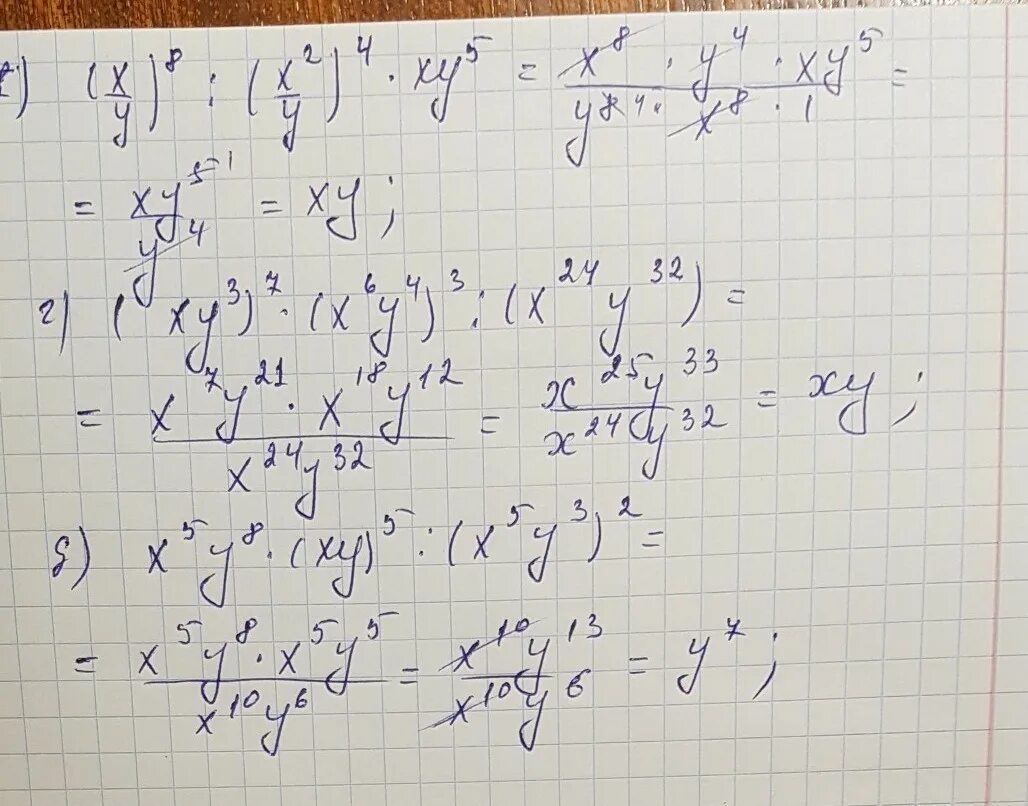 (x/y)^8 : (x^2/y)^4 · xy^5 = x^8 · y^4 · xy^5 / y^8 4 · x^8 · 1 =
= xy^5 1 / y^4 = xy;
г) (xy^3)^7 · (x^6y^4)^3 : (x^24 y^32) =
= x^7y^21 · x^18y^12 / x^24y^32 = x^25y^33 / x^24y^32 = xy;
д) x^5y^8 · (xy)^5 : (x^5y^3)^2 =
= x^5y^8 · x^5y^5 / x^10y^6 = x^10y^13 / x^10y^6 = y^7;